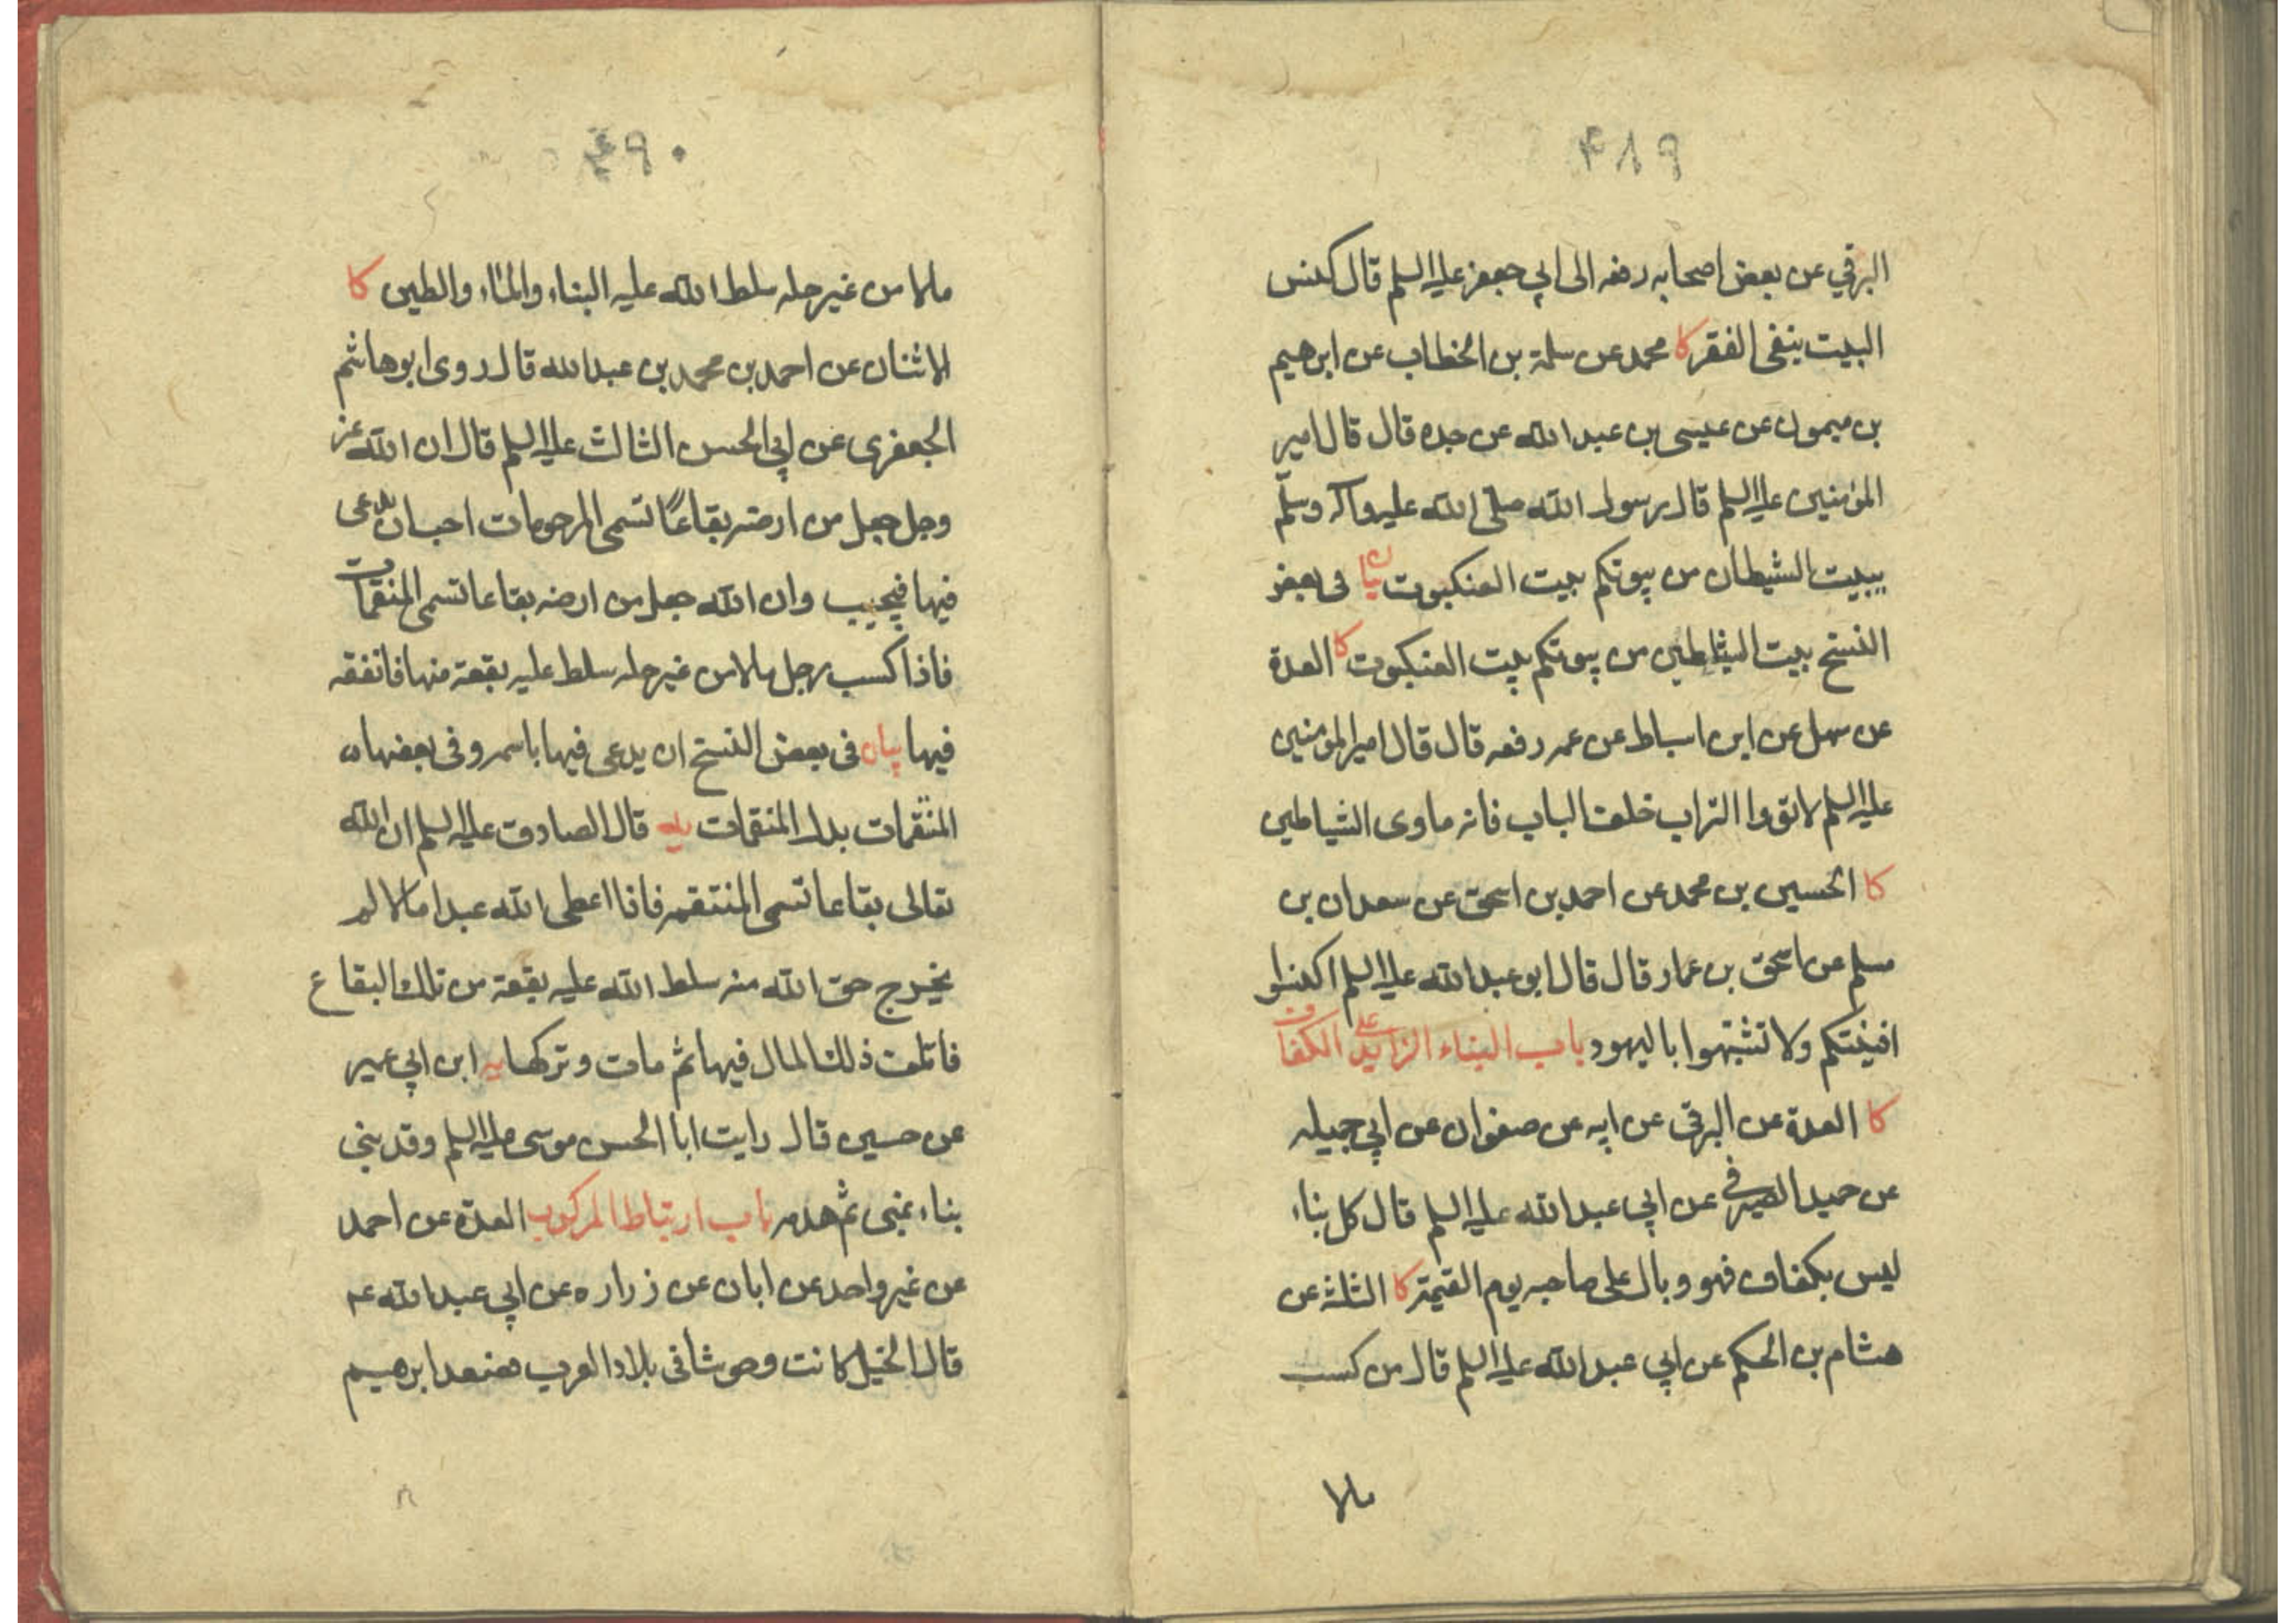 ۴۸۹
البرقي عن بعض اصحابه رفعه الى ابي جعفر عليه السلم قال كنس
البيت ينفى الفقر كا محمد عن سلمة بن الخطاب عن ابرهيم
بن ميمون عن عيسى بن عبد الله عن جده قال قال امير
المؤمنين عليه السلم قال رسول الله صلى الله عليه وآله وسلّم
بيت الشيطان من بيوتكم بيت العنكبوت بيان فى بعض
النسخ بيت الشياطين من بيوتكم بيت العنكبوت كا العدة
عن سهل عن ابن اسباط عن عمه رفعه قال قال امير المؤمنين
عليه السلم لا تؤوا التراب خلف الباب فانه ماوى الشياطين
كا الحسين بن محمد عن احمد بن اسحق عن سعدان بن
مسلم عن اسحق بن عمار قال قال ابو عبد الله عليه السلم اكنسوا
افنيتكم ولا تشبهوا باليهود باب البناء الزايد على الكفاف
كا العدة عن البرقى عن ابيه عن صفوان عن ابي جميله
عن حميد الصيرفى عن ابي عبد الله عليه السلم قال كل بناء
ليس بكفاف فهو وبال على صاحبه يوم القيمة كا الثلثة عن
هشام بن الحكم عن ابي عبد الله عليه السلم قال من كسب
مالا
۴۹۰
مالا من غير حله سلط الله عليه البناء والماء والطين كا
الاثنان عن احمد بن محمد بن عبد الله قال روى ابو هاشم
الجعفرى عن ابي الحسن الثالث عليه السلم قال ان الله عز
وجل جعل من ارضه بقاعًا تسمى المرحومات احب ان يدعى
فيها فيجيب وان الله جعل من ارضه بقاعا تسمى المنتقمات
فاذا كسب رجل مالا من غير حله سلط عليه بقعة منها فانفقه
فيها بيان فى بعض النسخ ان يدعى فيها باسمه وفى بعضها
المنقمات بدل المنتقمات يه قال الصادق عليه السلم ان لله
تعالى بقاعا تسمى المنتقمة فاذا اعطى الله عبدا مالا لم
يخرج حق الله منه سلط الله عليه بقعة من تلك البقاع
فاتلف ذلك المال فيها ثم مات وتركها يه ابن ابي عمير
عن حسين قال رايت ابا الحسن موسى عليه السلم وقد بنى
بناء بمنى ثم هدمه باب ارتباط المركوب العدة عن احمد
عن غير واحد عن ابان عن زراره عن ابي عبد الله ع
قال الخيل كانت وحوشا فى بلاد العرب فصعد ابرهيم